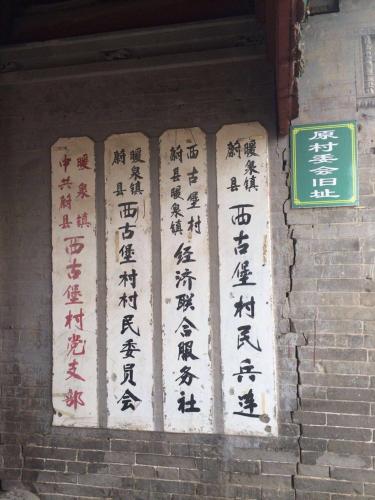 中共蔚县暖泉镇西古堡村党支部
蔚县暖泉镇西古堡村村民委员会
蔚县暖泉镇西古堡村经济联合服务社
蔚县暖泉镇西古堡村民兵连
原村委会旧址